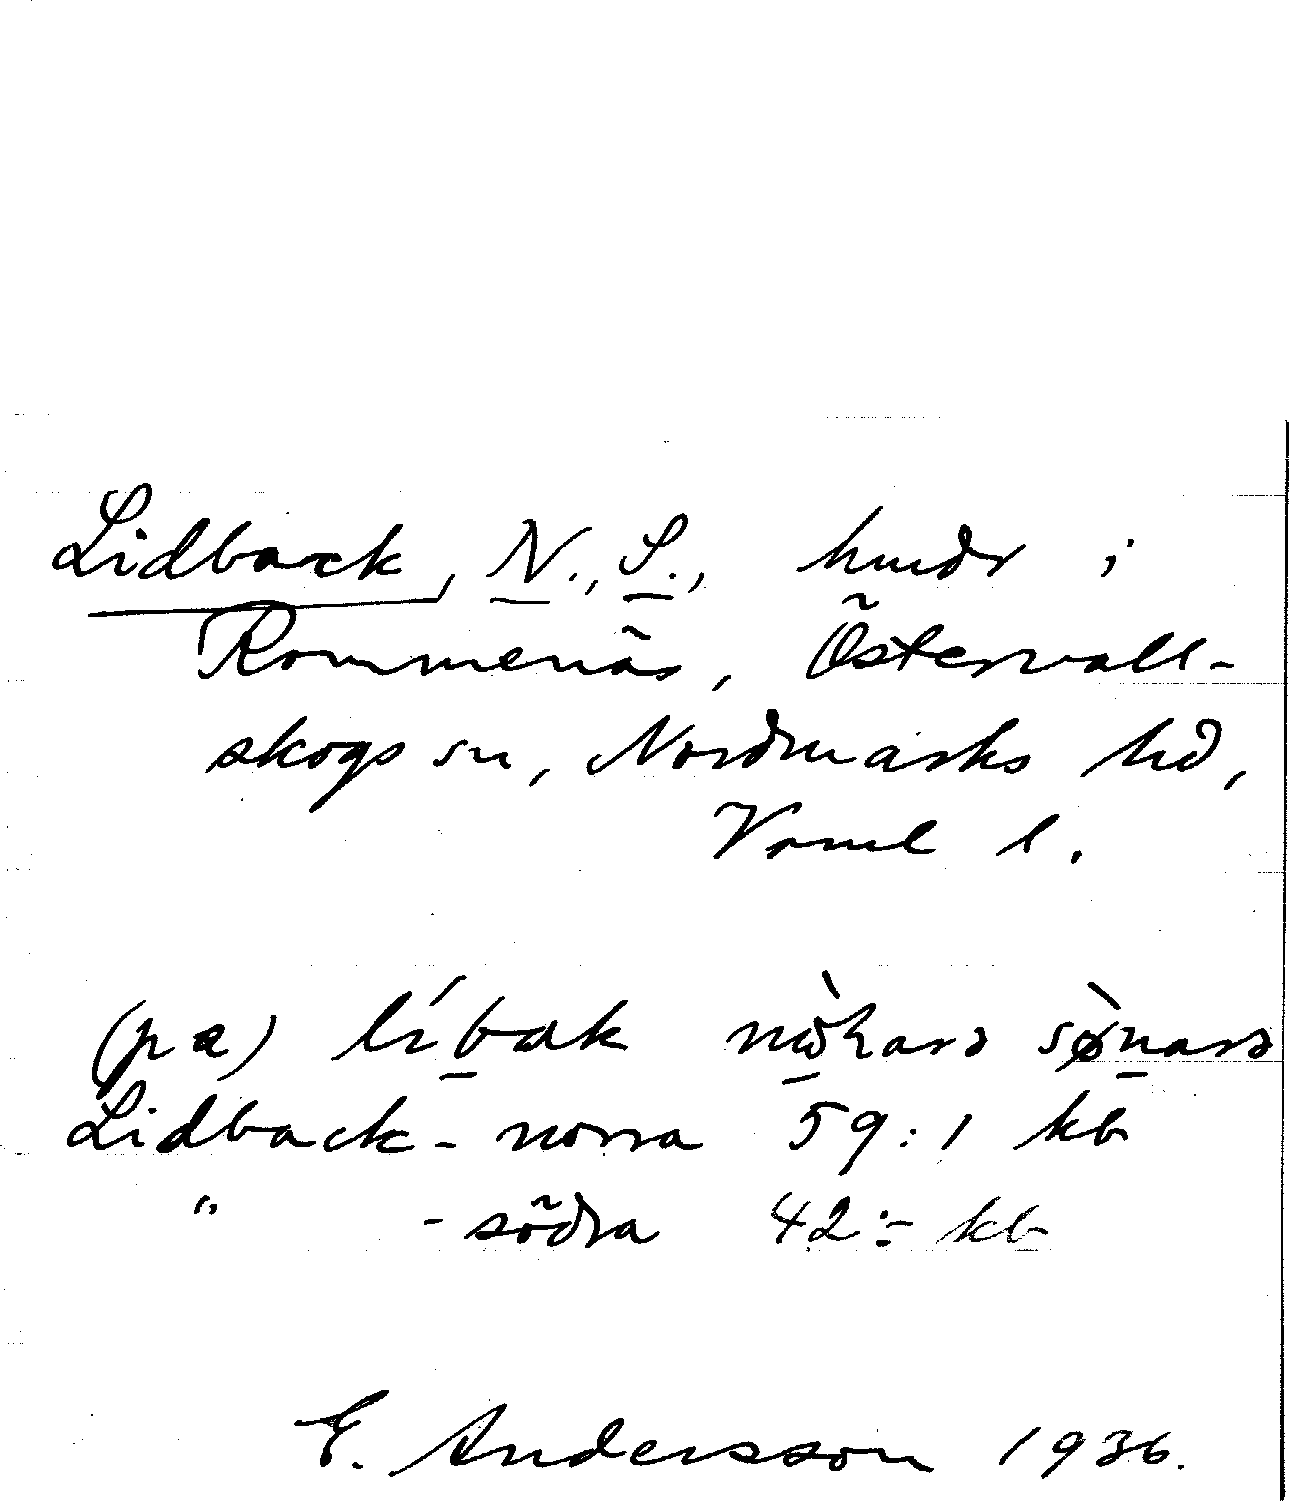 Lidback, N., S., hmdr i
Rommenäs, Östervall-
skogs sn, Nordmarks hd,
Värml l.
(pæ) líbak
Lidback - norra 59:1 kb
" - södra 42:- kb
E. Andersson 1936.